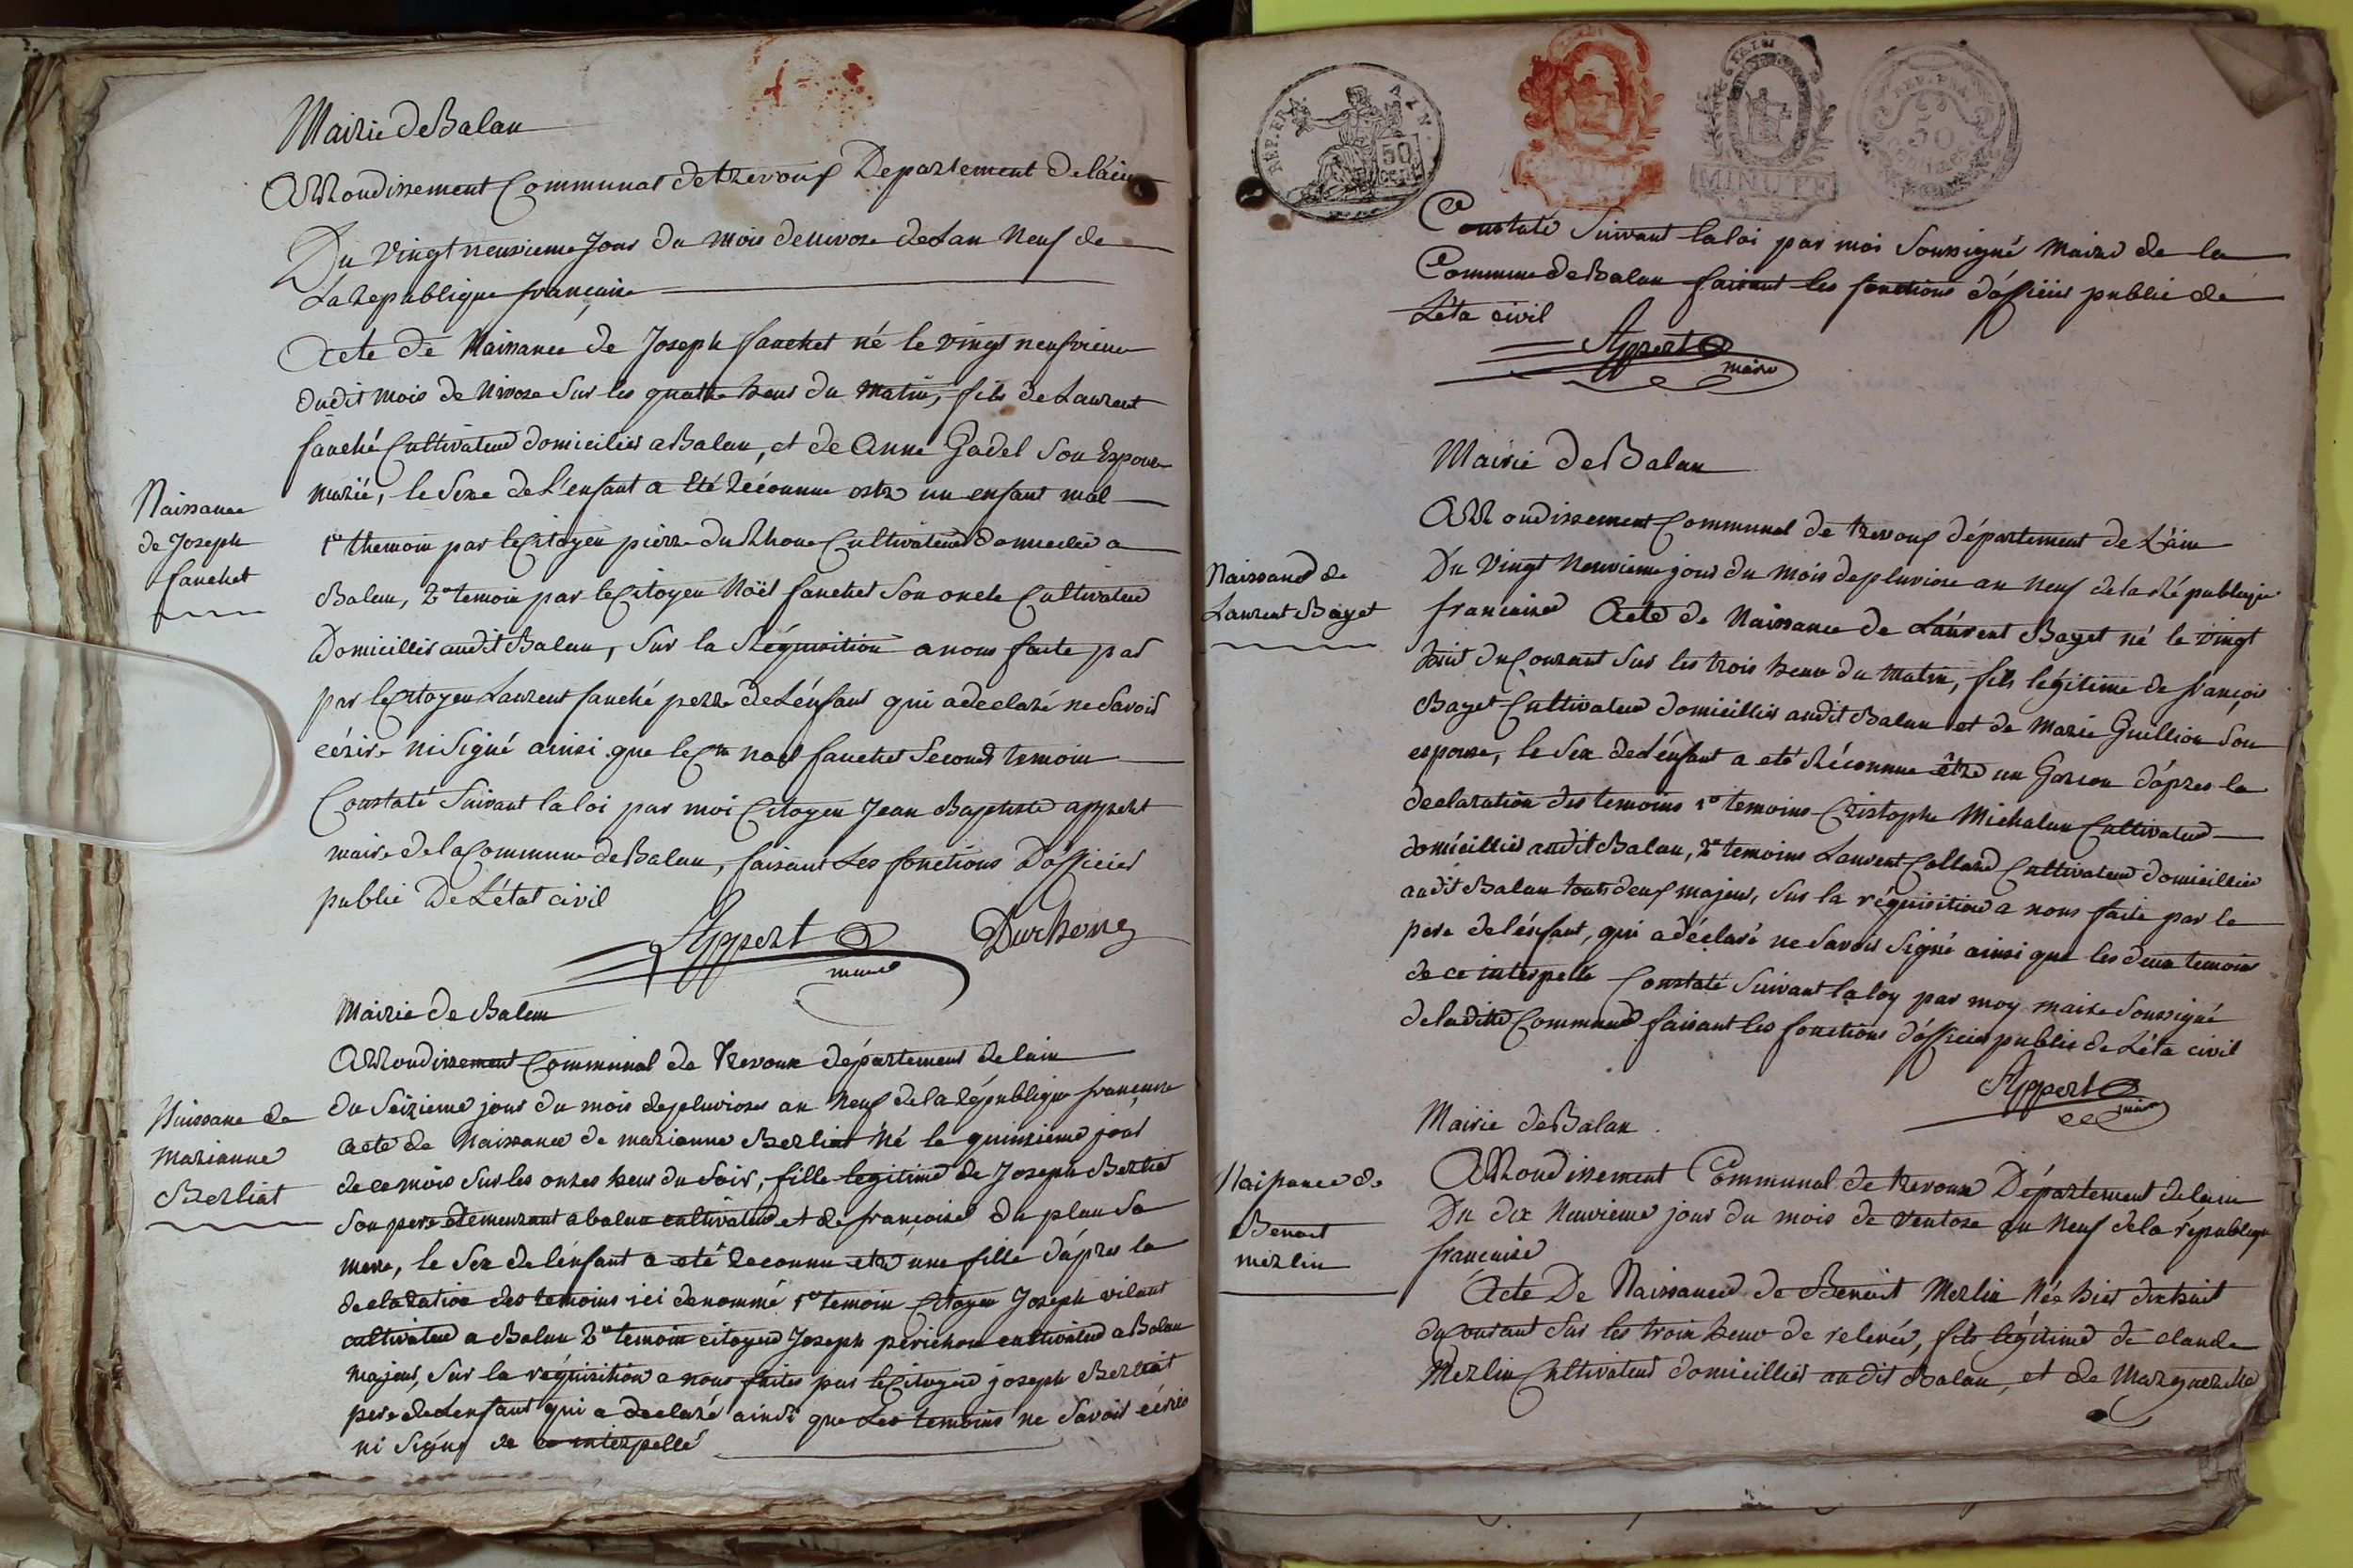 Mairie de Balan
Arrondissement Communal de trevoux Departement de l'ain
Du vingt neuvieme Jour du mois de nivose de L'an neuf de
La republique française
Acte de Naissance de Joseph fanchet né le vingt neufvieme
dudit mois de Nivose sur les quatre heur du matin, fils de Laurent
fanché Cultivateur domicilier a Balan, et de Anne Gadel son Espouse
marié, le sexe de L'enfant a été réconnue estre un enfant mal
Naissance
de Joseph
fanchet
1er themoin par le Citoyen pierre du Rhone Cultivateur domicilié a
Balan, 2e temoin par le Citoyen Noël fanchet son oncle Cultivateur
Domicillier audit Balan, sur la Réquisition a nous faite par
par le Citoyen Laurent fanché perre de L'énfant qui a declaré ne savoir
écrire ni signé ainsi que le Cen noel fanchet second temoin
Constaté suivant la loi par moi Citoyen Jean Baptiste appert
maire de la Commune de Balan, faisant Les fonctions D'officier
public De L'état civil
Appert
maire
Durhone
Mairie de Balan
Arrondissement Communal de Trevoux département de lain
du seizieme jour du mois de pluviose an neuf de la république françaisse
Naissane de
Marianne
Berliat
acte de Naissance de marianne Berliat Né le quinzieme jour
de ce mois sur les onzes heur du soir, fille legitime de Joseph Berliat
son pere demeurant a balan cultivateur et de françoise du plan sa
mere, le sex de l'énfant a eté reconnu etre une fille d'áprés la
declaration des temoins ici denommé 1er temoin Citoyen Joseph vilaut
cultivateur a Balan 2e temoin citoyen Joseph perichon cultivateur a Balan
majeur, sur la réquisition a nous faites par le Citoyen joseph Berliat
pere de L'enfant qui a declaré ainsi que Les temoins ne savoir écrire
ni signé de ce interpellé
REP. FRA
50
CENT
MINUTE
REP. FRA
50
Constaté suivant la loi par moi soussigné maire de la
Commune de Balan faisant les fonctions d'officier public de
L'éta civil
Appert
maire
Mairie de Balan
Arrondissement Communal de trevoux département de L'áin
Naissance de
Laurent Bayet
Du vingt neuvieme jour du mois de pluviose an neuf de la république
francaise Acte de Naissance de Laurent Bayet né le vingt
huit du Courant sur les trois heur du matin, fils légitime de françois
Bayet Cultivateur domicillier audit Balan et de Marie Guillion son
espouse, le sex de L'énfant a eté Réconnue être un Garcon d'ápres la
declaration des temoins 1er temoins Cristophe Michalan Cultivateur
domicillier audit Balan, 2e temoins Laurent Colland Cultivateur domicillier
audit Balan touts deux majeur, sur la réquisition a nous faite par le
pere de l'énfant, qui a déclaré ne savoir signé ainsi que les deux temoins
de ce interpellé Constaté suivant la loy par moy maire soussigné
de la ditte Commune faisant les fonctions d'officier public de L'éta civil
Appert
maire
Mairie de Balan
Arrondissement Communal de trevoux Département de lain
Naissance de
Benoit
merlin
Du dix neuvieme jour du mois de ventose an neuf de la république
francaise
Acte De Naissance de Benoit Merlin Née hier dixhuit
du Courant sur les trois heur de relevée, fils légitime de claude
Merlin Cultivateur domicillier audit Balan, et de Marguerite